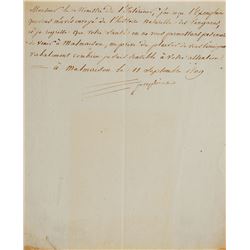 Monsieur le Ministre de l'Intérieur, j'ai reçu l'Exemplaire
que vous m'avez envoyé de l'histoire Naturelle des Tangaras,
et je regrette que votre Santé ne vous permettant pas encore
de venir à Malmaison, me prive du plaisir de vous témoigner
verbalement combien je suis sensible à votre attention.
à Malmaison le 11 Septembre 1809
Joséphine